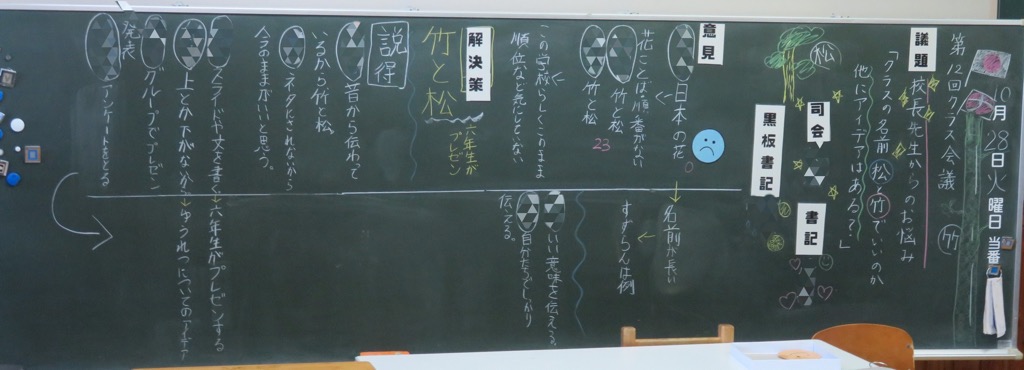 10月28日火曜日 当番
第12回クラス会議
竹
議題
校長先生からのお悩み
「クラスの名前、松、竹でいいのか
他にアイデアはある?」
松
司会
書記
黒板書記
意見
日本の花
0
名前が長い
すずらんは例
花ことは順番がない
竹と松
竹と松
23
この学校らしくこのまま
順位など感じとくない
いい意味を伝える。
自分たちでしっかり
伝える。
解決策
竹と松
六年生が
プレゼン
説得
昔から伝わって
いるから竹と松
ネタにされないから
今のままがいいと思う。
スライドや文を書く→六年生がプレゼンする
上とか下がないから→
グループでプレゼン
発表
アンケートをとる